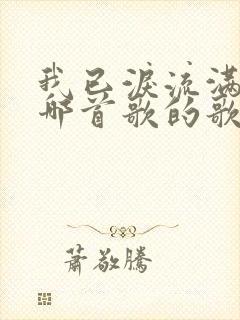 我已淚流滿
哪首歌的歌
蕭敬騰